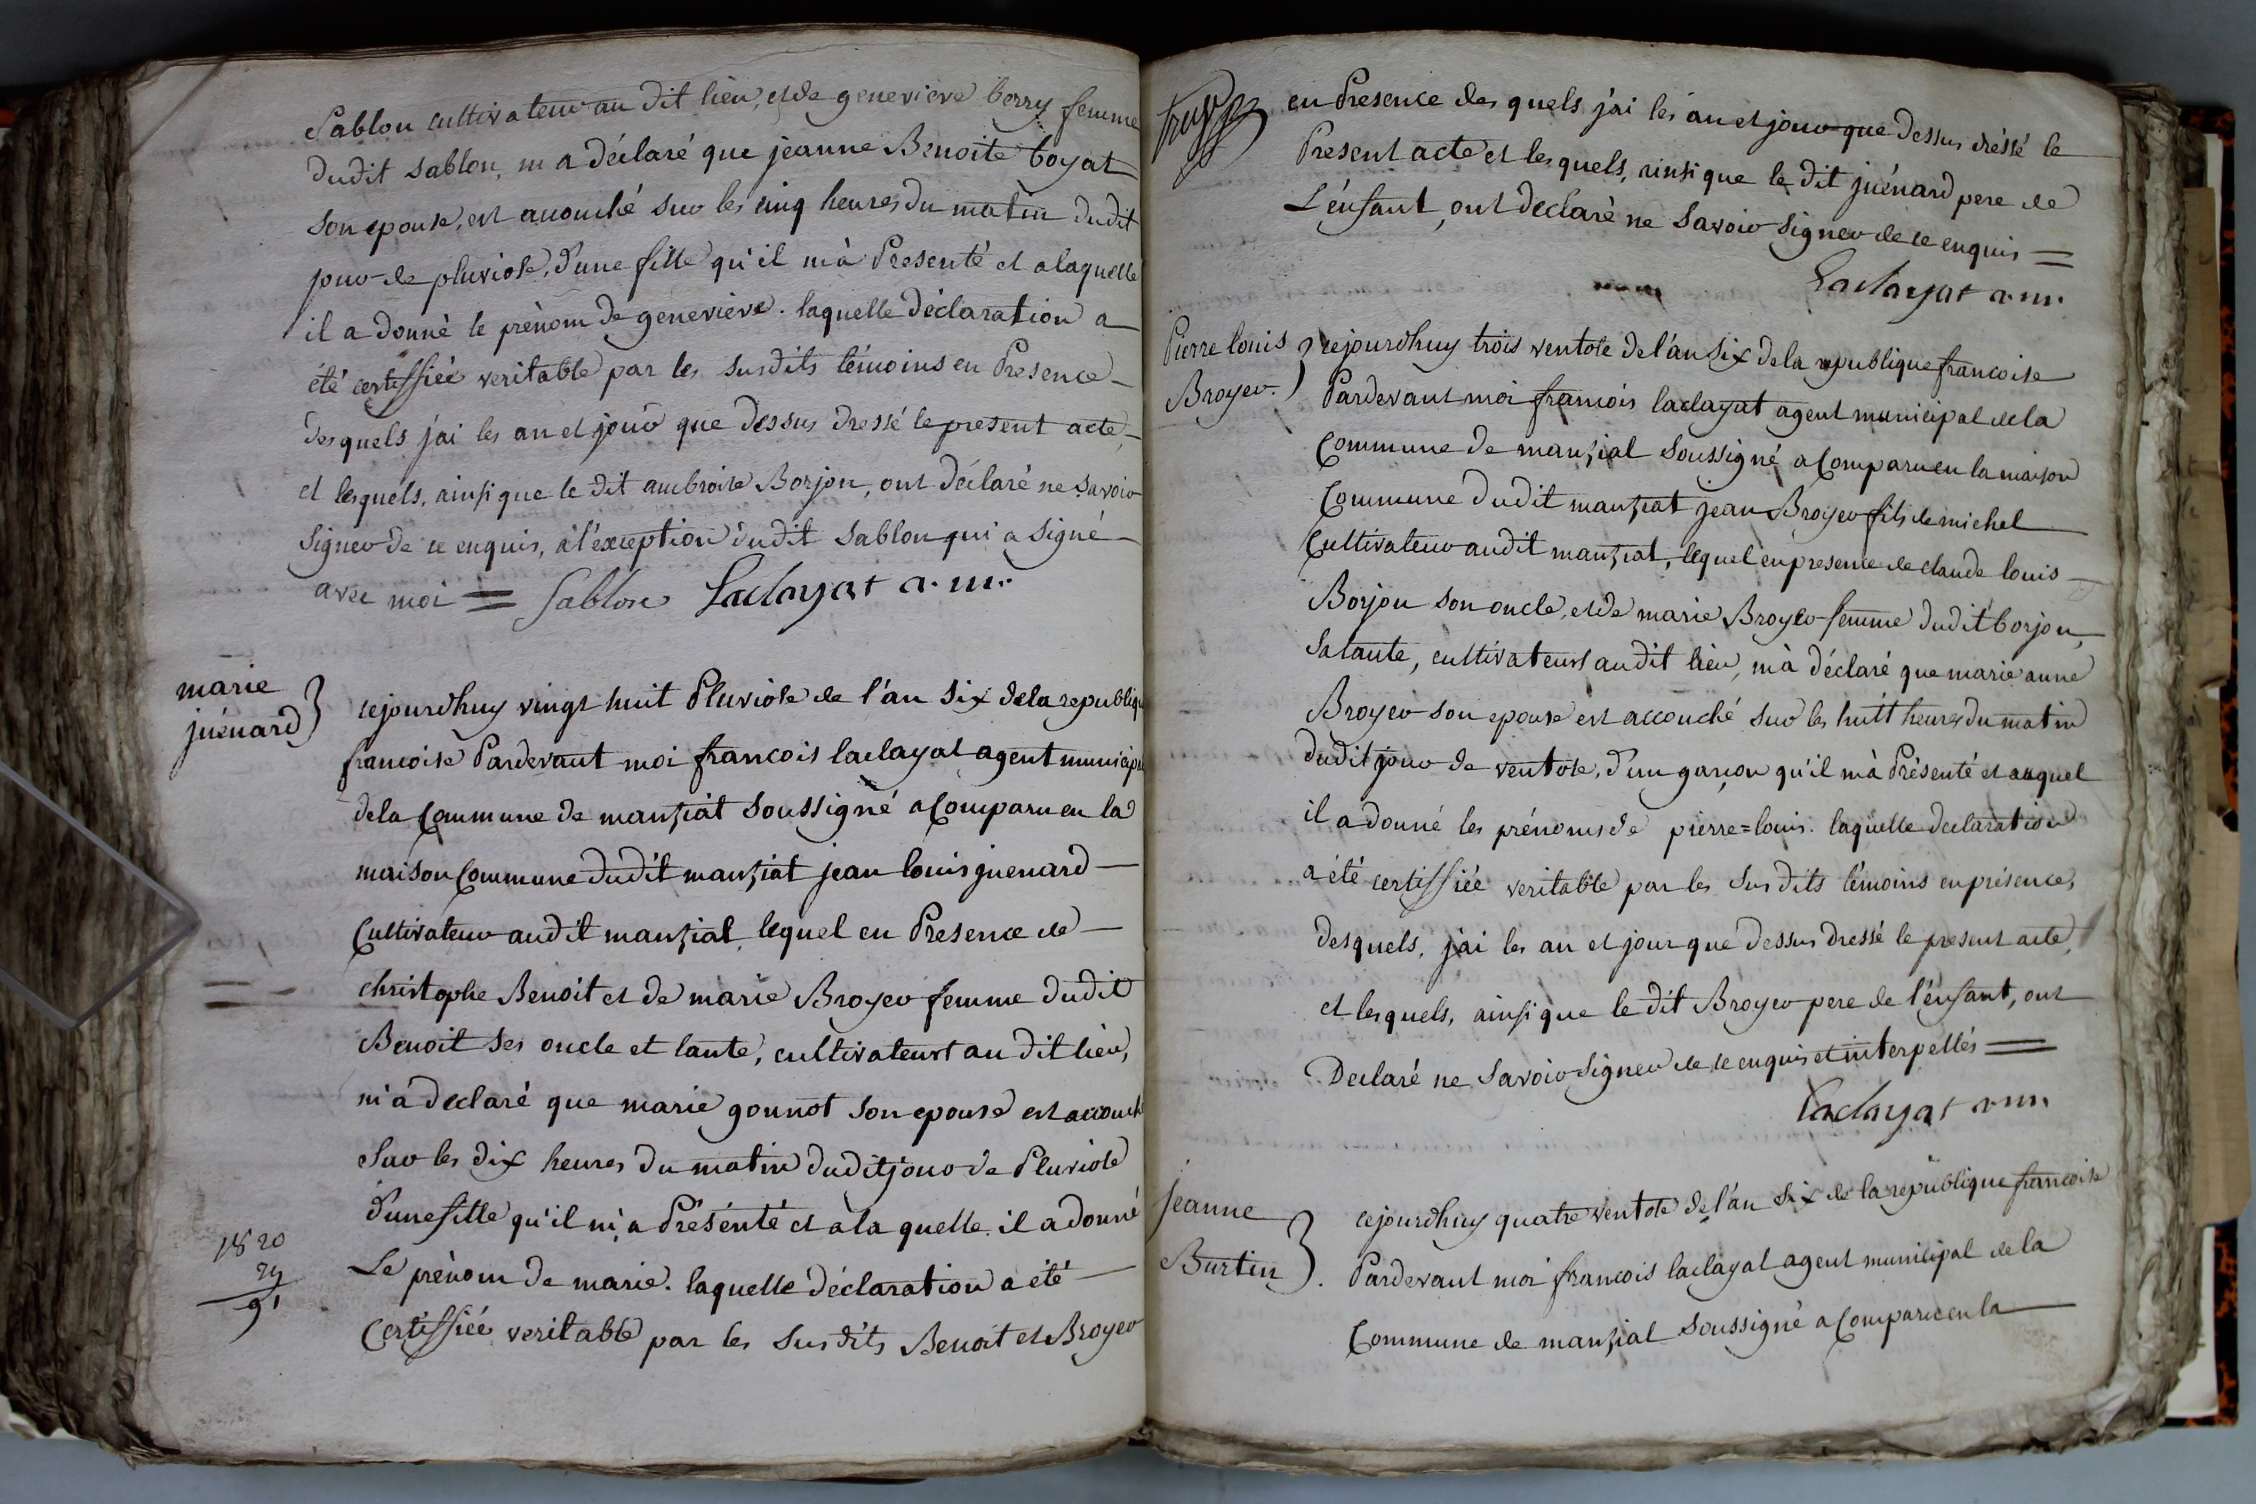 Sablon cultivateur au dit lieu, et de genevieve berry femme
dudit sablon, m'a déclaré que jeanne Benoite boyat
son epouse, est acouché sur les cinq heures du matin dudit
jour de pluviose, d'une fille qu'il m'à Presenté et a laquelle
il a donné le prénom de genevieve. laquelle déclaration a
été certiffiée veritable par les susdits témoins en Presence
desquels j'ai les an et jour que dessus dressé le présent acte,
et lesquels, ainsi que le dit ambroise Borjon, ont déclaré ne savoir
signer de ce enquis, à l'exception dudit sablon qui a signé
avec moi = Sablon Laclayat a.m.
marie
juénard
cejourdhuy vingt huit Pluviose de l'an six de la republique
francoise Pardevant moi francois laclayat agent municipal
de la Commune de manziat soussigné a Comparu en la
maison Commune dudit manziat jean louis juenard
Cultivateur audit manziat, lequel en Presence de
christophe Benoit et de marie Broyer femme dudit
Benoit ses oncle et tante, cultivateurs au dit lieu,
m'a declaré que marie gonnot son epouse est accouché
Sur les dix heures du matin dudit jour de Pluviose
d'une fille qu'il m'a Présénté et à la quelle il a donné
Le prènom de marie. laquelle déclaration a été
Certiffiée veritable par les Susdits Benoit et Broyer
1820
29
91
en Presence des quels j'ai les an et jour que dessus dréssé le
Present acte et les quels, ainsi que le dit juénard pere de
L'énfant, ont declaré ne savoir signer de ce enquis =
Laclayat a.m.
Pierre louis
Broyer.
cejourdhuy trois ventose de l'an six de la republique francoise
Pardevant moi francois laclayat agent municipal de la
Commune de manziat soussigné a Comparu en la maison
Commune dudit manziat jean Broyer fils de michel
Cultivateur audit manziat, lequel en presence de claude louis
Borjon son oncle, et de marie Broyer femme dudit borjon,
Sa tante, cultivateurs audit lieu, m'à déclaré que marie anne
Broyer son epouse est accouché sur les huitt heures du matin
dudit jour de ventose, d'un garçon qu'il m'à Présenté et auquel
il a donné les prénoms de pierre=louis. laquelle declaration
a été certiffiée veritable par les Susdits témoins en présence,
desquels, j'ai les an et jour que dessus dressé le present acte,
et lesquels, ainsi que le dit Broyer pere de l'énfant, ont
Declaré ne Savoir signer de ce enquis et interpellés =
Laclayat a.m.
jeanne
Burtin
cejourdhuy quatre ventose de l'an six de la republique francoise
Pardevant moi francois laclayat agent municipal de la
Commune de manziat soussigné a Comparu en la